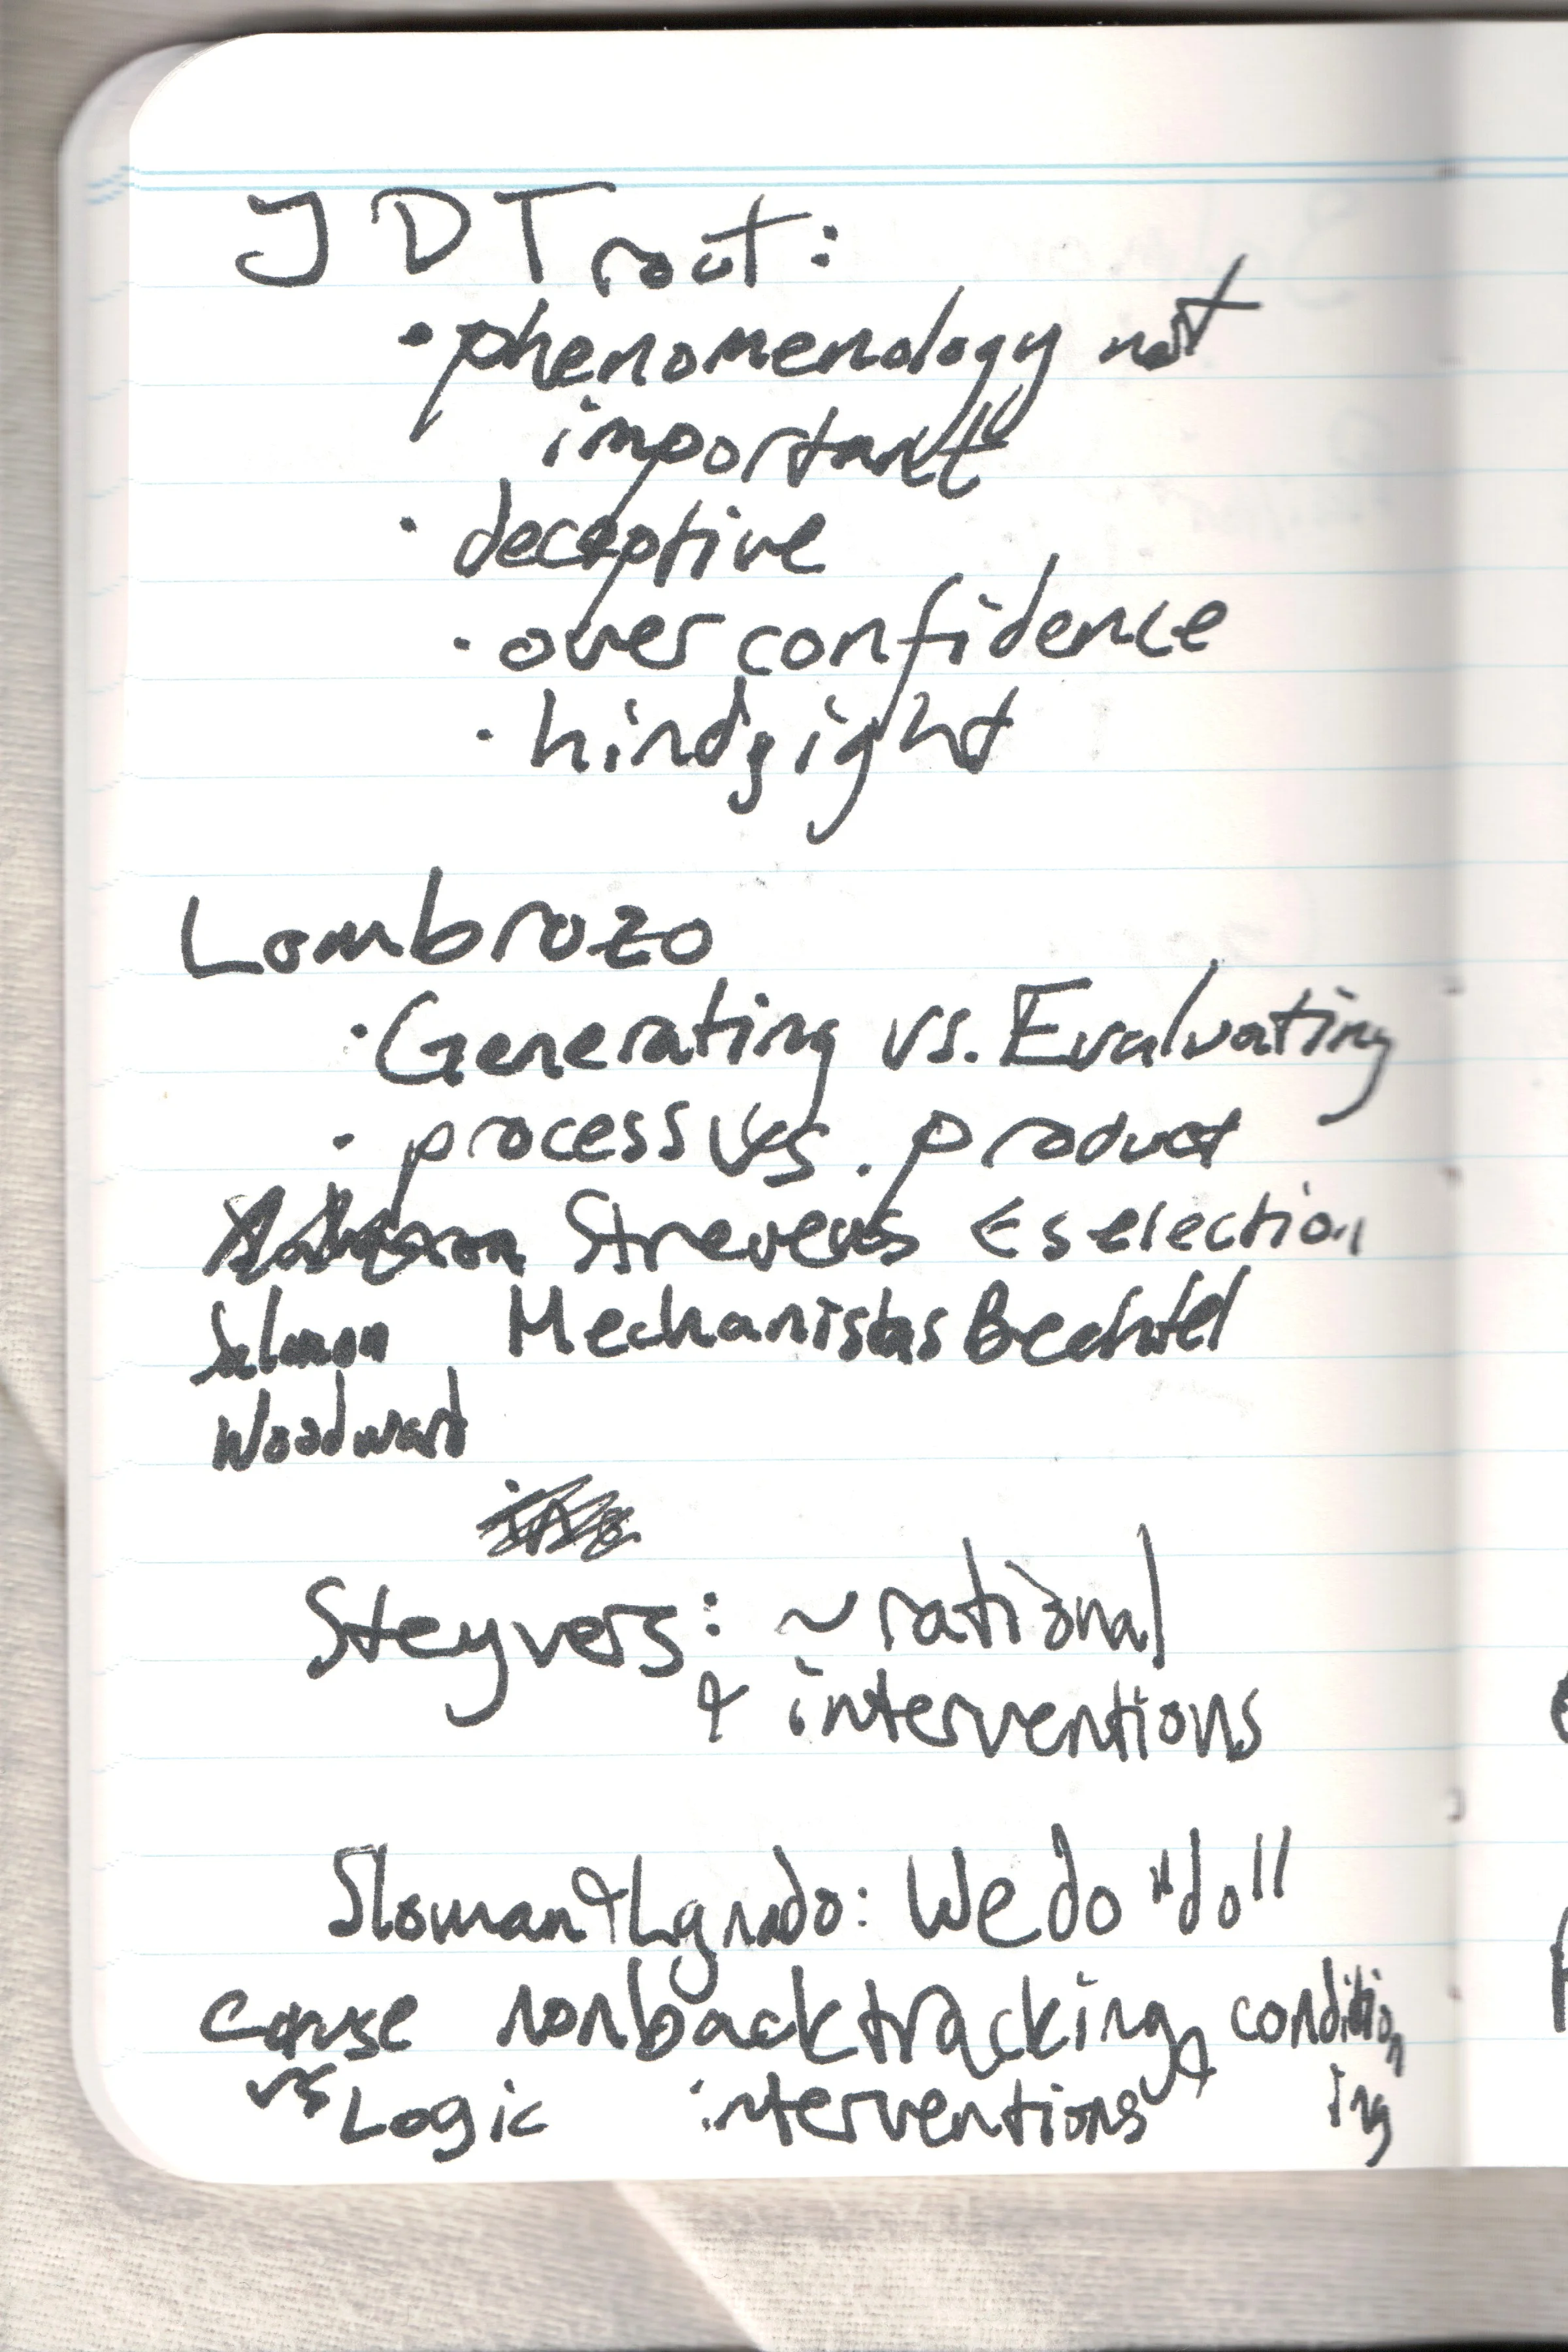 JD Trout:
· phenomenology not
important
· deceptive
· over confidence
· hindsight
Lombrozo
· Generating vs. Evaluating
· process vs. product
Strevens ← selection
Salmon Mechanists Bechtel
Woodward
Steyvers: ~ rational
& interventions
Sloman & Lgnado: We do "do"
cause nonbacktracking & condition
vs Logic interventions ing